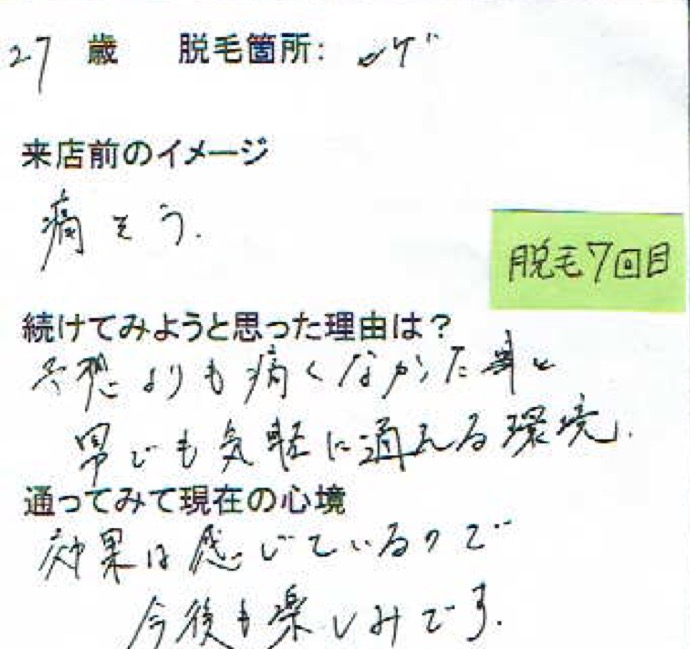 27 歳 脱毛箇所: ヒゲ
来店前のイメージ
痛そう.
脱毛7回目
続けてみようと思った理由は?
予想よりも痛くなかった事と
男でも気軽に通える環境.
通ってみて現在の心境
効果は感じているので
今後も楽しみです.